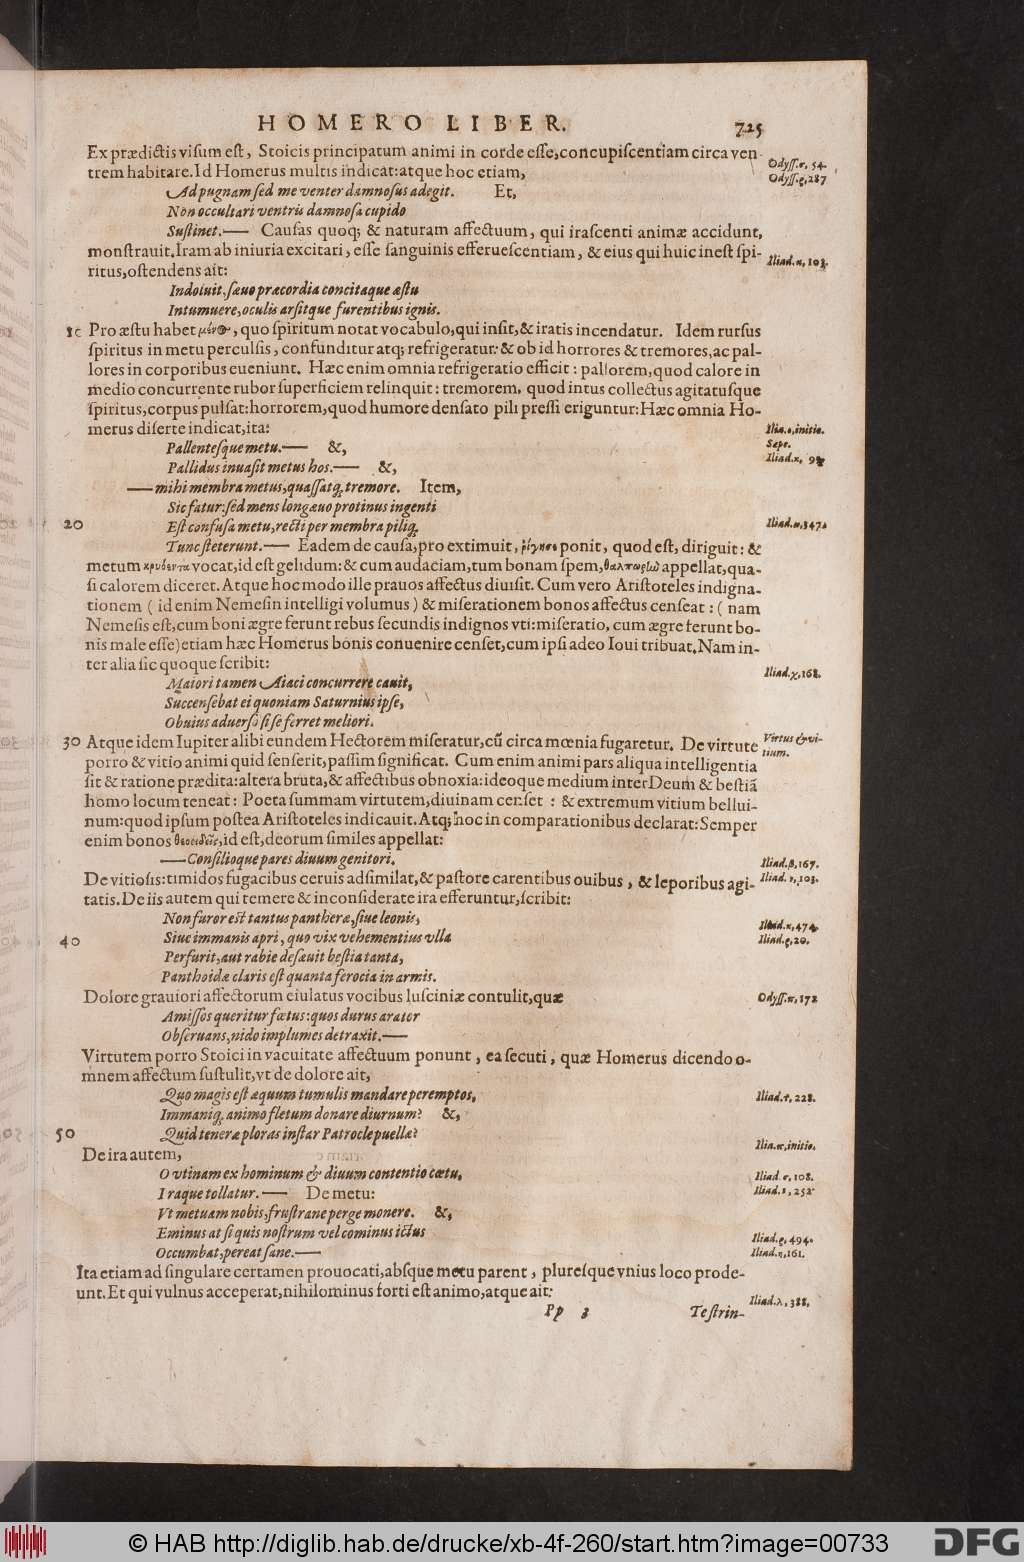 HOMERO LIBER. 725
Ex prædictis visum est, Stoicis principatum animi in corde esse, concupiscentiam circa ven-
trem habitare. Id Homerus multis indicat: atque hoc etiam,
Odyss.σ, 54.
Odyss.ρ, 287
Ad pugnam sed me venter damnosus adegit. Et,
Non occultari ventris damnosa cupido
Sustinet.— Causas quoq; & naturam affectuum, qui irascenti animæ accidunt,
monstrauit. Iram ab iniuria excitari, esse sanguinis efferuescentiam, & eius qui huic inest spi-
Iliad.α, 103.
ritus, ostendens ait:
Indoluit, sæuo præcordia concitaque æstu
Intumuere, oculis arsitque furentibus ignis.
10 Pro æstu habet μένος, quo spiritum notat vocabulo, qui insit, & iratis incendatur. Idem rursus
spiritus in metu perculsis, confunditur atq; refrigeratur: & ob id horrores & tremores, ac pal-
lores in corporibus eueniunt. Hæc enim omnia refrigeratio efficit: pallorem, quod calore in
medio concurrente rubor superficiem relinquit: tremorem, quod intus collectus agitatusque
spiritus, corpus pulsat: horrorem, quod humore densato pili pressi eriguntur: Hæc omnia Ho-
merus diserte indicat, ita:
Ilia.ο, initio.
Sæpe.
Pallentesque metu.— &,
Iliad.κ, 95
Pallidus inuasit metus hos.— &,
—mihi membra metus, quassatq; tremore. Item,
Sic fatur: sed mens longæuo protinus ingenti
20 Est confusa metu, recti per membra piliq;
Iliad.ω, 347.
Tunc steterunt.— Eadem de causa, pro extimuit, ῥίγησε ponit, quod est, diriguit: &
metum κρυόεντα vocat, id est gelidum: & cum audaciam, tum bonam spem, θαλπωρὴν appellat, qua-
si calorem diceret. Atque hoc modo ille prauos affectus diuisit. Cum vero Aristoteles indigna-
tionem ( id enim Nemesin intelligi volumus ) & miserationem bonos affectus censeat : ( nam
Nemesis est, cum boni ægre ferunt rebus secundis indignos vti: miseratio, cum ægre ferunt bo-
nis male esse) etiam hæc Homerus bonis conuenire censet, cum ipsi adeo Ioui tribuat. Nam in-
ter alia sic quoque scribit:
Iliad.χ, 168.
Maiori tamen Aiaci concurrere cauit,
Succensebat ei quoniam Saturnius ipse,
Obuius aduerso si se ferret meliori.
30 Atque idem Iupiter alibi eundem Hectorem miseratur, cũ circa mœnia fugaretur. De virtute
Virtus & vi-
tium.
porro & vitio animi quid senserit, passim significat. Cum enim animi pars aliqua intelligentia
sit & ratione prædita: altera bruta, & affectibus obnoxia: ideoque medium inter Deum & bestiã
homo locum teneat: Poeta summam virtutem, diuinam censet : & extremum vitium bellui-
num: quod ipsum postea Aristoteles indicauit. Atq; hoc in comparationibus declarat: Semper
enim bonos θεοειδεῖς, id est, deorum similes appellat:
—Consilioque pares diuum genitori.
Iliad.β, 167.
De vitiosis: timidos fugacibus ceruis adsimilat, & pastore carentibus ouibus, & leporibus agi-
Iliad.ν, 103.
tatis. De iis autem qui temere & inconsiderate ira efferuntur, scribit:
Non furor est tantus pantheræ, siue leonis,
Iliad.κ, 474.
40 Siue immanis apri, quo vix vehementius vlla
Iliad.ρ, 20.
Perfurit, aut rabie desæuit bestia tanta,
Panthoidæ claris est quanta ferocia in armis.
Dolore grauiori affectorum eiulatus vocibus lusciniæ contulit, quæ
Odyss.π, 172
Amissos queritur fœtus: quos durus arator
Obseruans, nido implumes detraxit.—
Virtutem porro Stoici in vacuitate affectuum ponunt, ea secuti, quæ Homerus dicendo o-
mnem affectum sustulit, vt de dolore ait,
Quo magis est æquum tumulis mandare peremptos,
Iliad.τ, 228.
Immaniq; animo fletum donare diurnum? &,
50 Quid teneræ ploras instar Patrocle puellæ?
Ilia.π, initio.
De ira autem,
O vtinam ex hominum & diuum contentio cœtu,
Iliad.σ, 108.
Iraque tollatur.— De metu:
Iliad.ε, 252
Vt metuam nobis, frustrane perge monere. &,
Eminus at si quis nostrum vel cominus ictus
Iliad.ρ, 494.
Occumbat, pereat sane.—
Iliad.η, 161.
Ita etiam ad singulare certamen prouocati, absque metu parent, pluresque vnius loco prode-
unt. Et qui vulnus acceperat, nihilominus forti est animo, atque ait:
Iliad.λ, 388.
Pp 3 Te strin-
© HAB http://diglib.hab.de/drucke/xb-4f-260/start.htm?image=00733
DFG